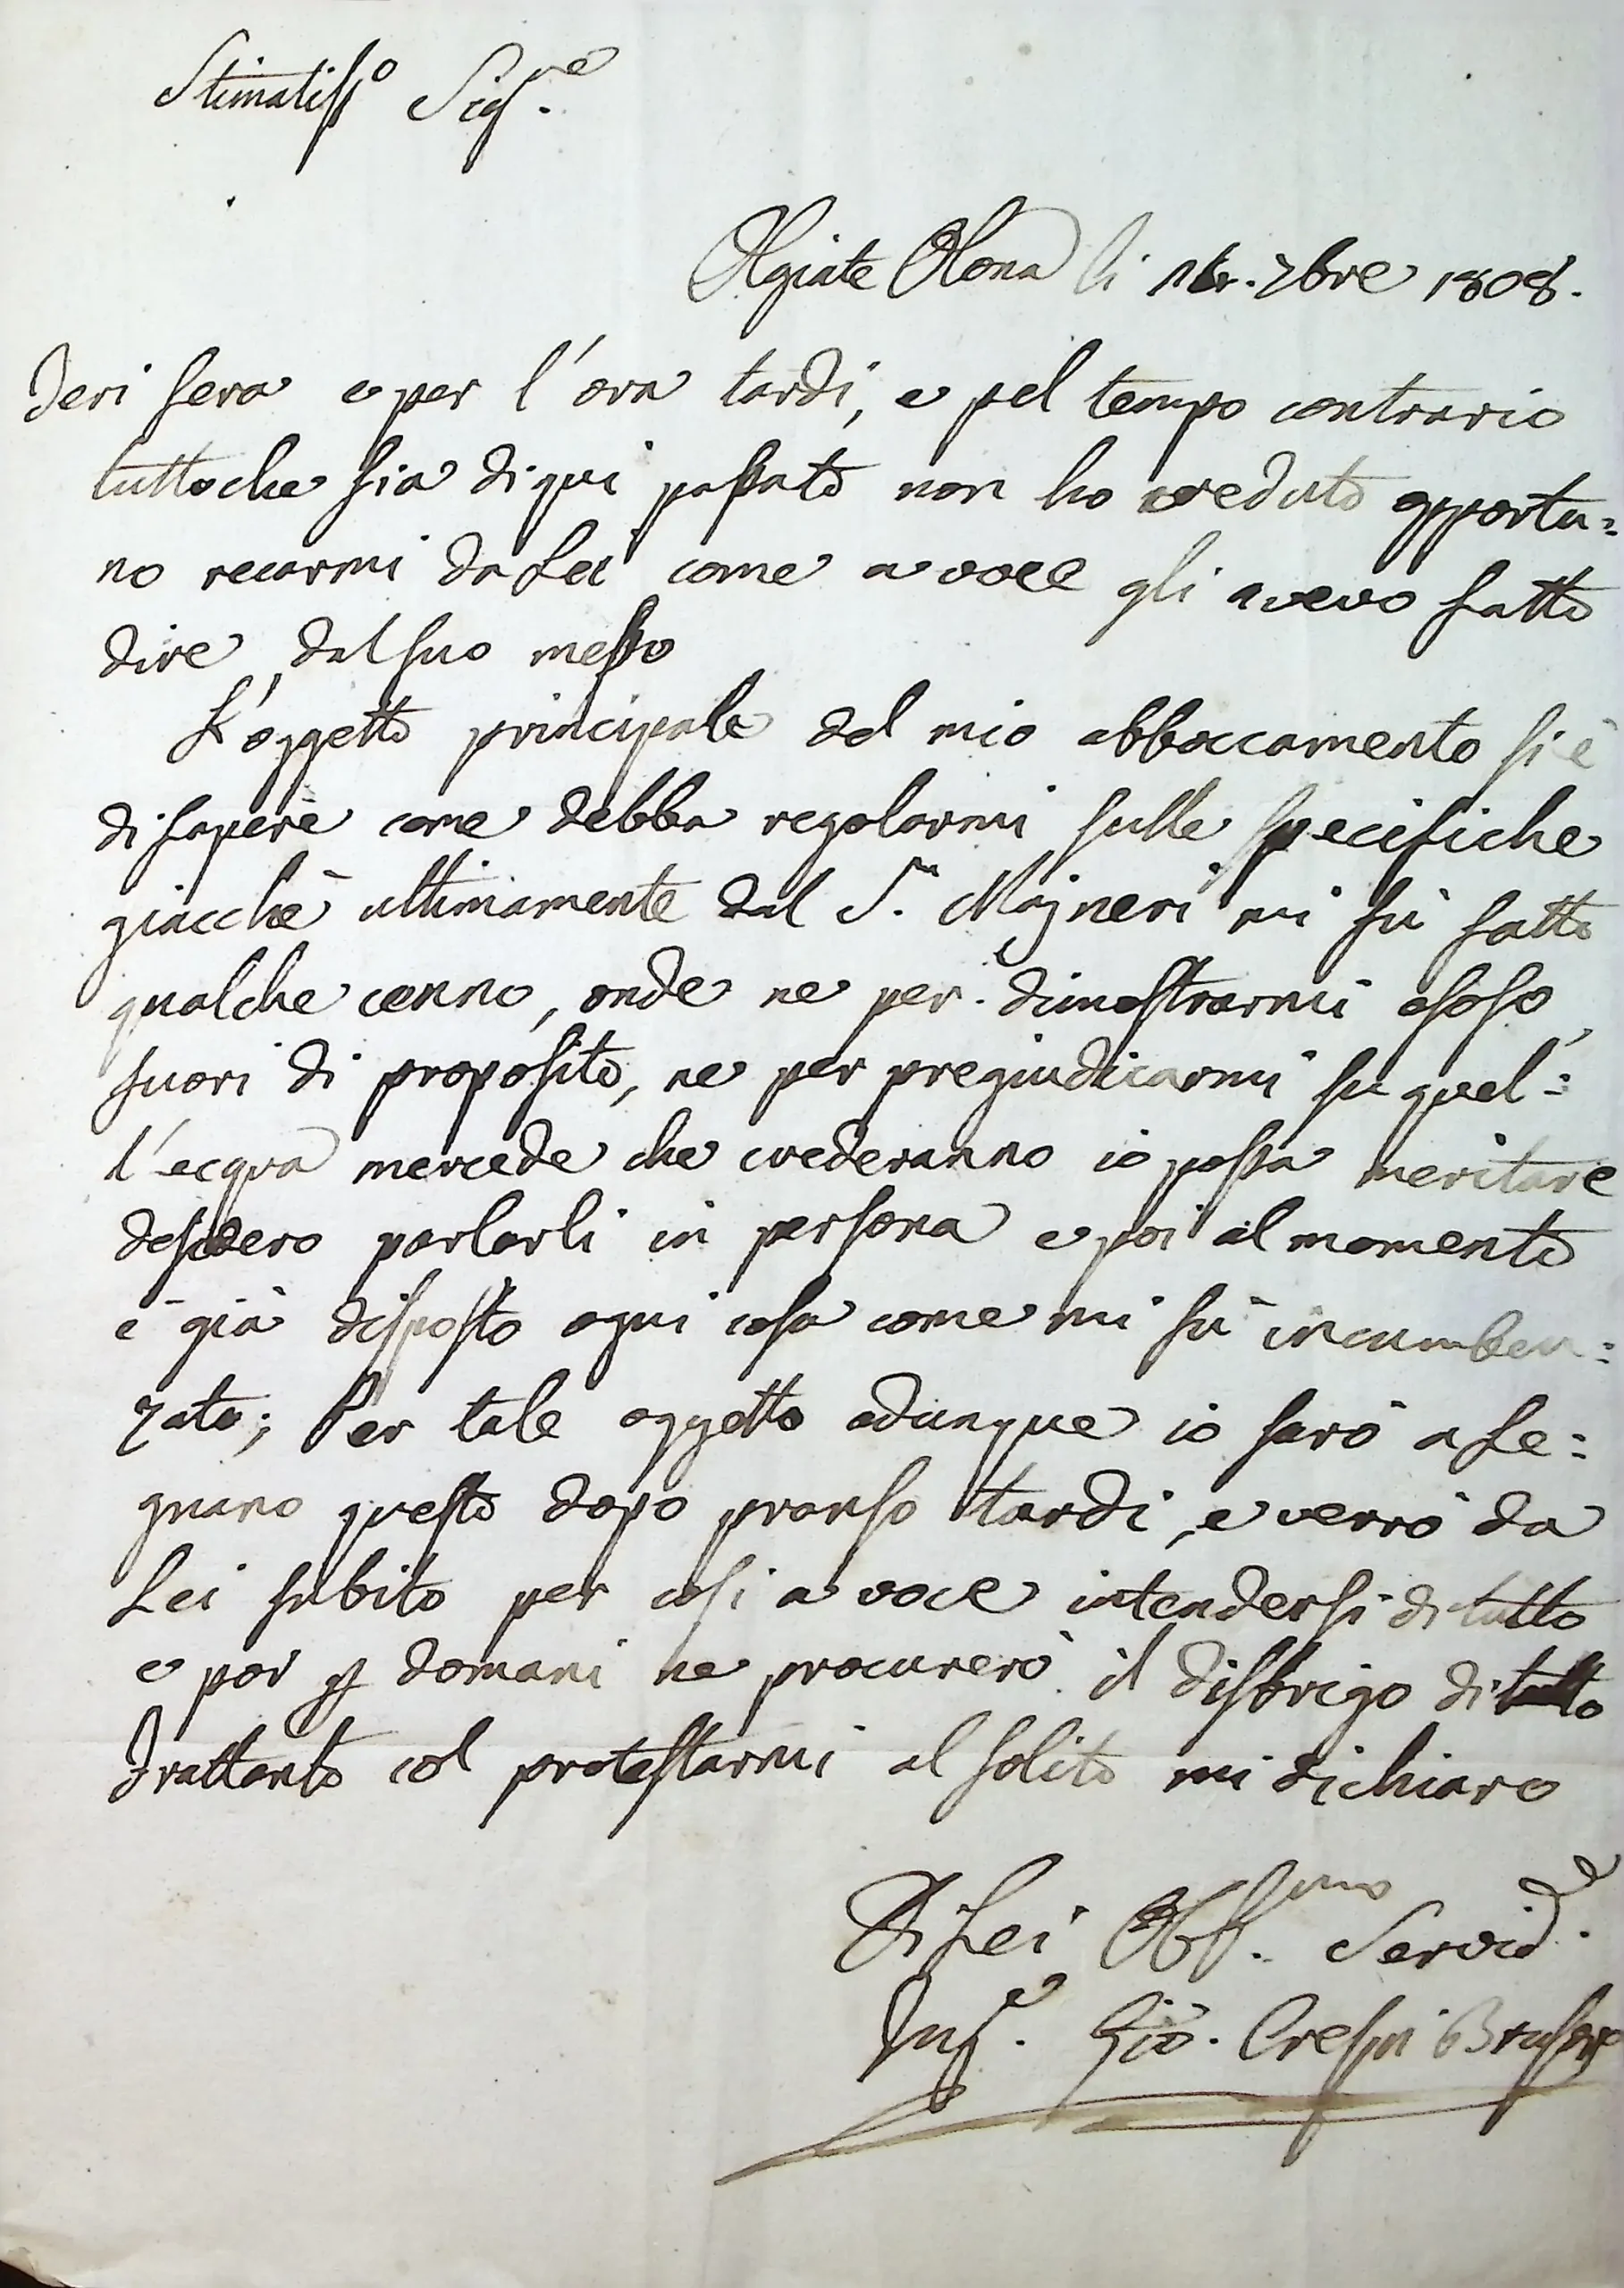 Stimatiss.o Sig.re
Olgiate Olona li 7bre 1808.
Jeri sera e per l'ora tardi, e pel tempo contrario
tuttoche sia di qui passato non ho creduto opportu=
no recarmi da Lei come a voce gli avevo fatto
dire dal suo messo
L'oggetto principale del mio abboccamento si è
di sapere come debba regolarmi sulle specifiche
giacchè ultimamente dal S.r Majneri mi fù fatto
qualche cenno, onde ne per dimostrarmi esoso
fuori di proposito, ne per pregiudicarmi su quel=
l'ecqua mercede che crederanno io possa meritare
desidero parlarli in persona e poi al momento
è già disposto ogni cosa come mi fù incumben=
zato; Per tale oggetto adunque io sarò a Le=
gnano questo dopo pranso tardi, e verrò da
Lei subito per cosi a voce intendersi di tutto
e poi p domani ne procurerò il disbrigo di tutto
Frattanto col protestarmi al solito mi dichiaro
Di Lei Obb.mo Servid.e
Ing.e Gio. Crespi